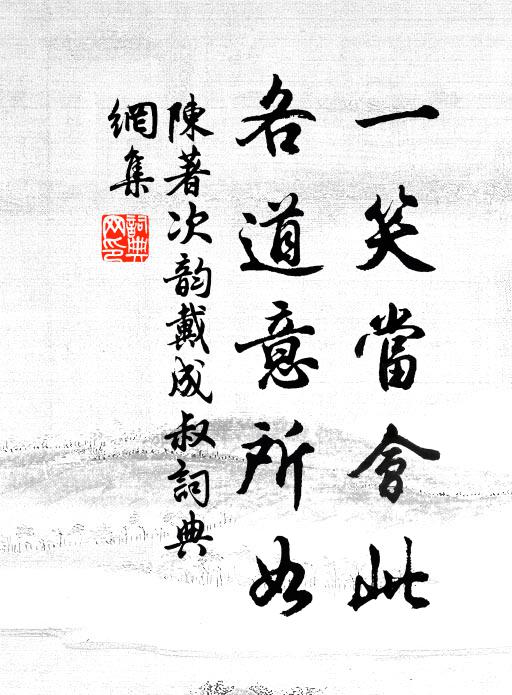 一笑當會此
各道意所如
陳著次韵戴成叔詞典
網集
詞典
网印